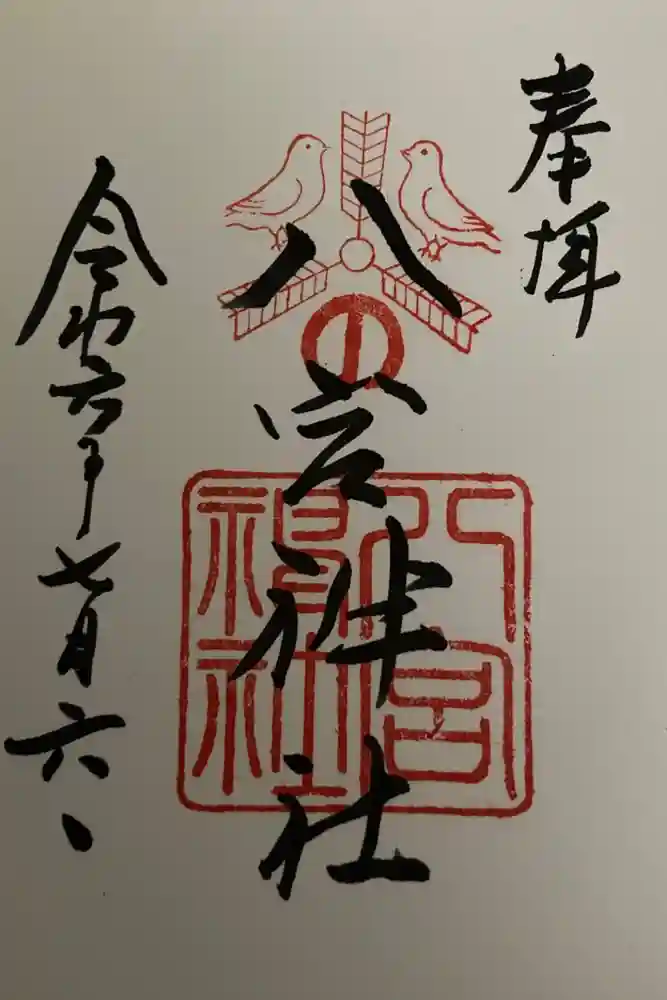 奉拝
八宮神社
八宮神社
令和六年七月六日